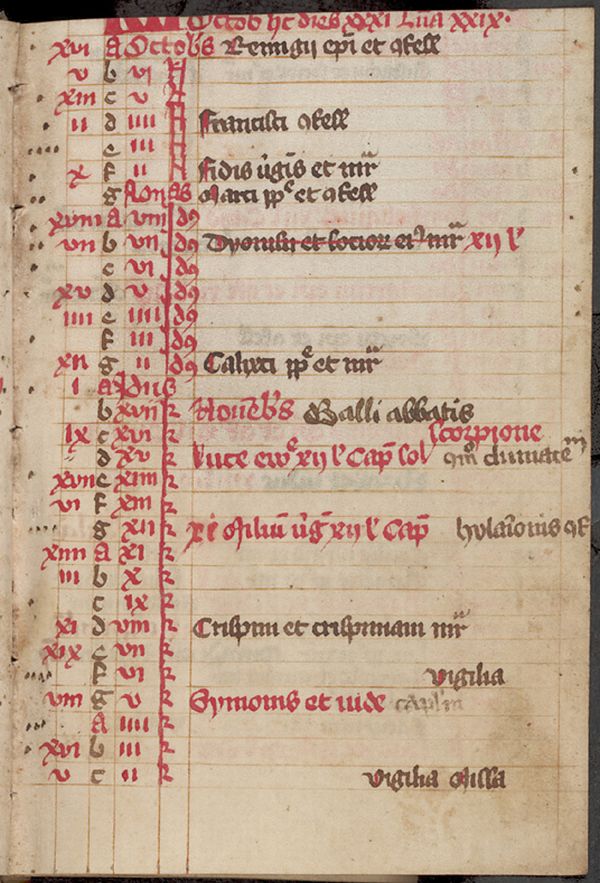 Octob hꝫ dies xxxi Lua xxix.
xvi A Octob's Remigii epi et ɔfess
v b vi N
xiii c v N
ii d iiii N Francisci ɔfess
e iii N
x f ii N Fidis v̄gīs et mr̄
g Nonas Marci pp̄e et ɔfess
xviii A viii Id9
vii b vii Id9 Dyonisii et socior eiꝰ mr̄ xii l'
c vi Id9
xv d v Id9
iiii e iiii Id9
f iii Id9
xii g ii Id9 Calixti pp̄e et mr̄
i A Idus
b xvii k Novēb's Galli abbatis
ix c xvi k scorpione
d xv k luce ewᵉ xii l' Cap̄ sol
xvii e xiiii k
vi f xiii k
g xii k xi Miliū v̄g xii l' Cap̄
xiiii A xi k
iii b x k
c ix k
xi d viii k Crispini et crispiniani mr̄
xix e vii k
f vi k vigilia
viii g v k Symonis et iude
A iiii k
xvi b iii k
v c ii k vigilia Missa